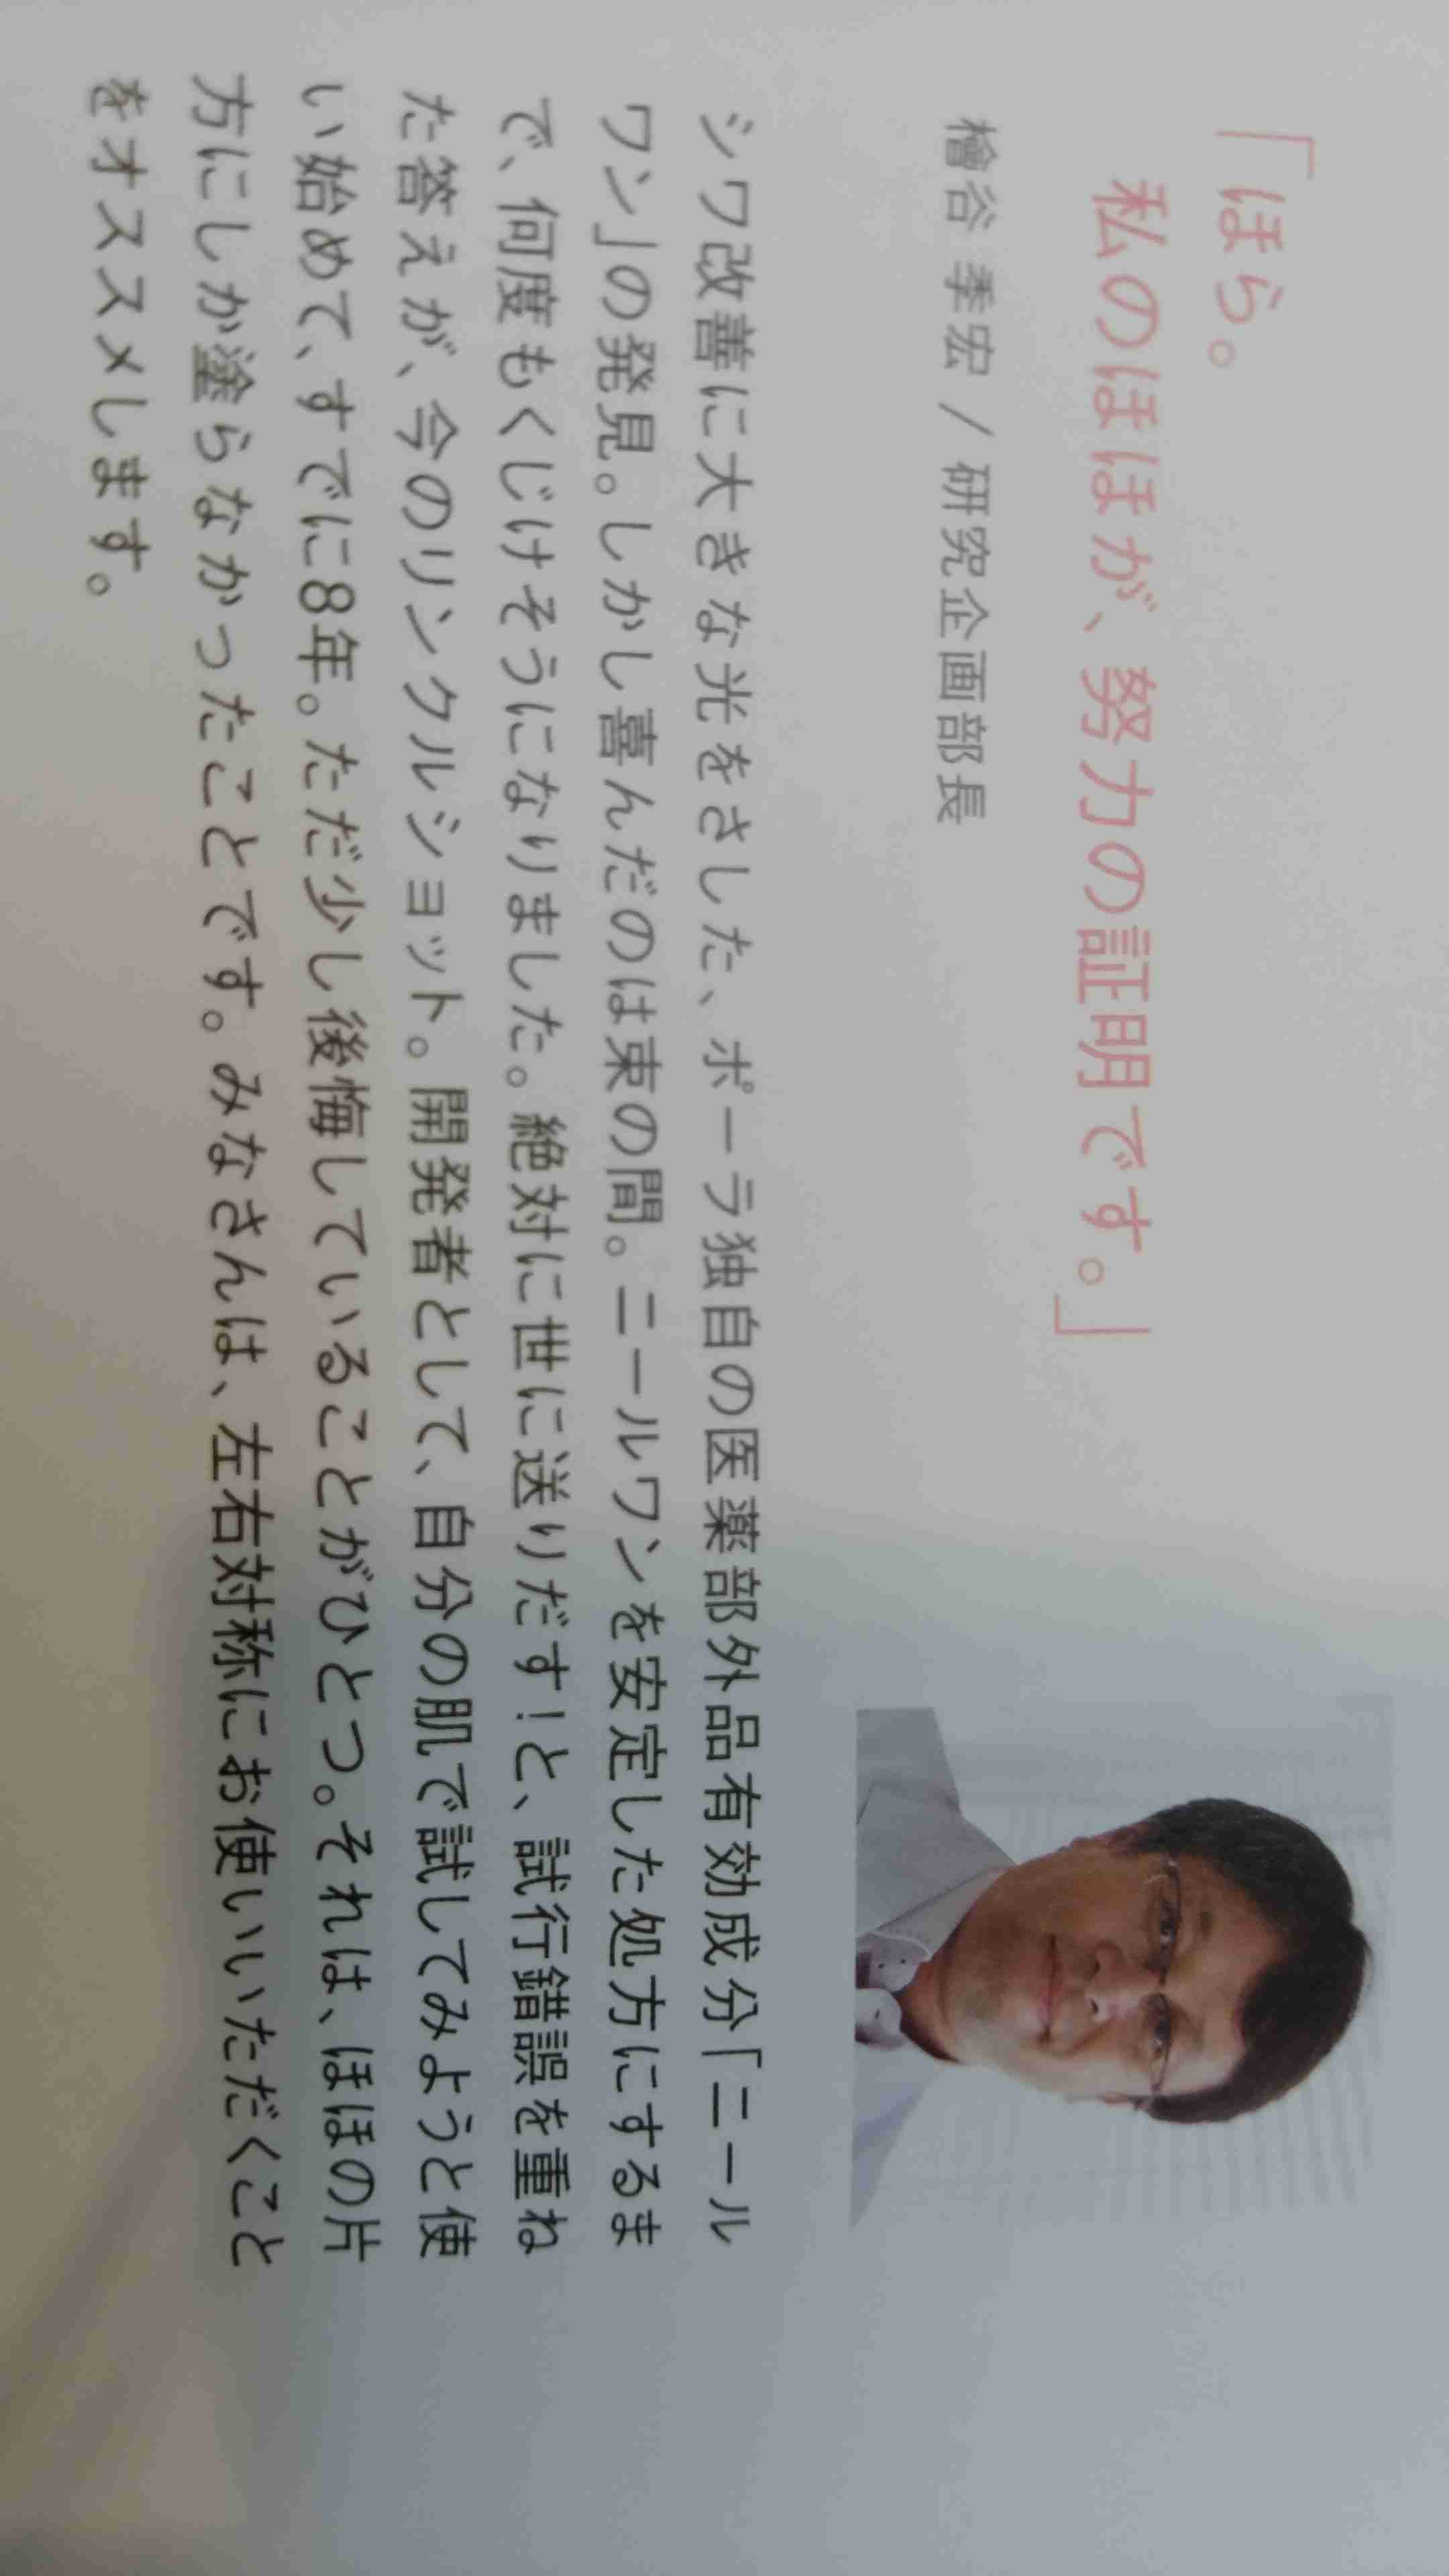 「ほら。
私のほほが、努力の証明です。」
檜谷 季宏 / 研究企画部長
シワ改善に大きな光をさした、ポーラ独自の医薬部外品有効成分「ニール
ワン」の発見。しかし喜んだのは束の間。ニールワンを安定した処方にするま
で、何度もくじけそうになりました。絶対に世に送りだす!と、試行錯誤を重ね
た答えが、今のリンクルショット。開発者として、自分の肌で試してみようと使
い始めて、すでに8年。ただ少し後悔していることがひとつ。それは、ほほの片
方にしか塗らなかったことです。みなさんは、左右対称にお使いいただくこと
をオススメします。